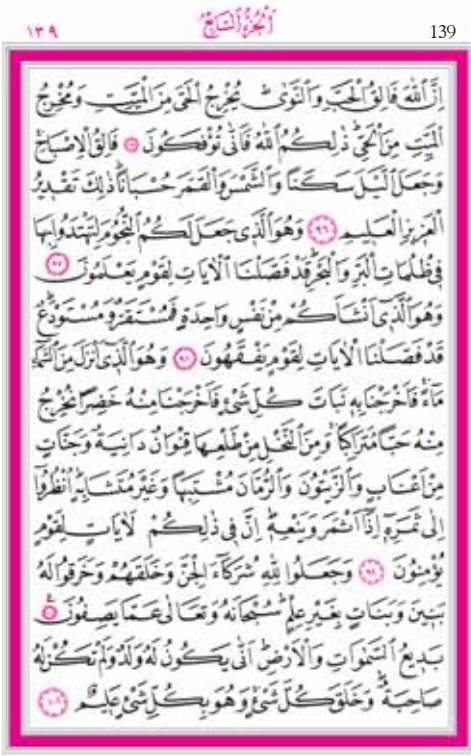 ١٣٩ الجزء السابع 139
اِنَّ اللّٰهَ فَالِقُ الْحَبِّ وَالنَّوٰىۜ يُخْرِجُ الْحَيَّ مِنَ الْمَيِّتِ وَمُخْرِجُ
الْمَيِّتِ مِنَ الْحَيِّۜ ذٰلِكُمُ اللّٰهُ فَاَنّٰى تُؤْفَكُونَ ﴿٩٥﴾ فَالِقُ الْاِصْبَاحِۚ
وَجَعَلَ الَّيْلَ سَكَنًا وَالشَّمْسَ وَالْقَمَرَ حُسْبَانًاۜ ذٰلِكَ تَقْدِيرُ
الْعَزِيزِ الْعَلِيمِ ﴿٩٦﴾ وَهُوَ الَّذِي جَعَلَ لَكُمُ النُّجُومَ لِتَهْتَدُوا بِهَا
فِي ظُلُمَاتِ الْبَرِّ وَالْبَحْرِۜ قَدْ فَصَّلْنَا الْاٰيَاتِ لِقَوْمٍ يَعْلَمُونَ ﴿٩٧﴾
وَهُوَ الَّذِٓي اَنْشَاَكُمْ مِنْ نَفْسٍ وَاحِدَةٍ فَمُسْتَقَرٌّ وَمُسْتَوْدَعٌۜ
قَدْ فَصَّلْنَا الْاٰيَاتِ لِقَوْمٍ يَفْقَهُونَ ﴿٩٨﴾ وَهُوَ الَّذِٓي اَنْزَلَ مِنَ السَّمَٓاءِ
مَٓاءًۚ فَاَخْرَجْنَا بِهِ نَبَاتَ كُلِّ شَيْءٍ فَاَخْرَجْنَا مِنْهُ خَضِرًا نُخْرِجُ
مِنْهُ حَبًّا مُتَرَاكِبًاۚ وَمِنَ النَّخْلِ مِنْ طَلْعِهَا قِنْوَانٌ دَانِيَةٌ وَجَنَّاتٍ
مِنْ اَعْنَابٍ وَالزَّيْتُونَ وَالرُّمَّانَ مُشْتَبِهًا وَغَيْرَ مُتَشَابِهٍۜ اُنْظُرُٓوا
اِلٰى ثَمَرِهِٓ اِذَٓا اَثْمَرَ وَيَنْعِهِۜ اِنَّ فِي ذٰلِكُمْ لَاٰيَاتٍ لِقَوْمٍ
يُؤْمِنُونَ ﴿٩٩﴾ وَجَعَلُوا لِلّٰهِ شُرَكَٓاءَ الْجِنَّ وَخَلَقَهُمْ وَخَرَقُوا لَهُ
بَنِينَ وَبَنَاتٍ بِغَيْرِ عِلْمٍۜ سُبْحَانَهُ وَتَعَالٰى عَمَّا يَصِفُونَ ﴿١٠٠﴾
بَدِيعُ السَّمٰوَاتِ وَالْاَرْضِۜ اَنّٰى يَكُونُ لَهُ وَلَدٌ وَلَمْ تَكُنْ لَهُ
صَاحِبَةٌۜ وَخَلَقَ كُلَّ شَيْءٍۚ وَهُوَ بِكُلِّ شَيْءٍ عَلِيمٌ ﴿١٠١﴾